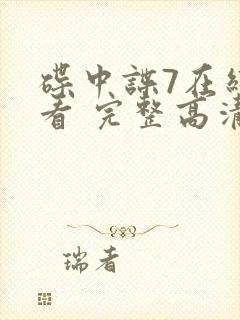 碟中諜7在線
看 完整高清
瑞者